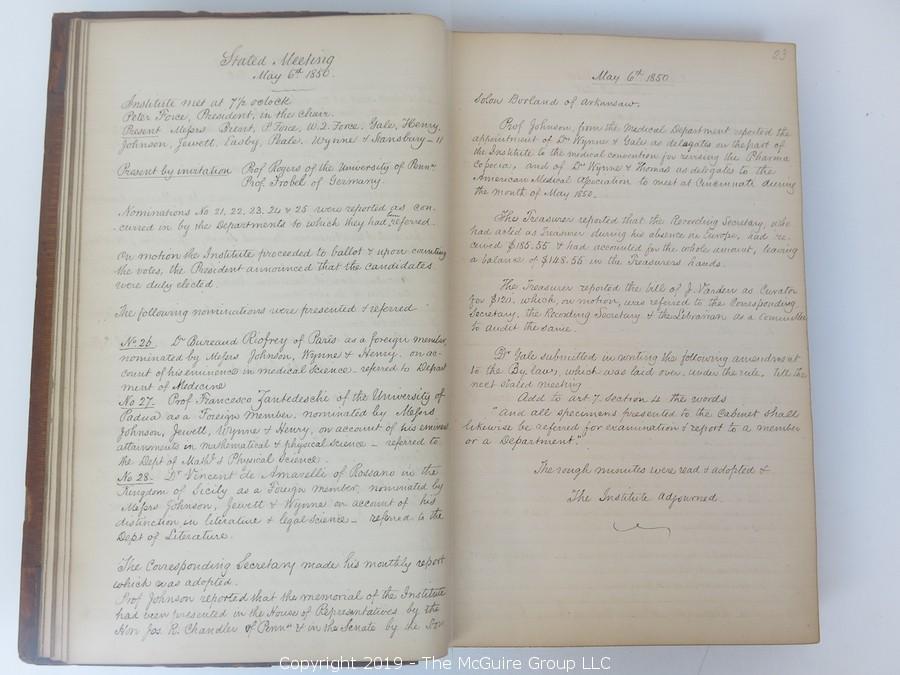 Stated Meeting
May 6th 1850.
Institute met at 7½ oclock
Peter Force, President, in the chair.
Present Messrs Brent, P. Force, W.Q. Force, Gale, Henry,
Johnson, Jewett, Easby, Peale, Wynne & Stansbury — 11
Present by invitation Prof Rogers of the University of Penna
Prof. Frobel of Germany.
Nominations No 21, 22, 23, 24 & 25 were reported as con-
-curred in by the Departments to which they had been referred.
On motion the Institute proceeded to ballot & upon counting
the votes, the President announced that the candidates
were duly elected.
The following nominations were presented & referred
No. 26. Dr Bureaud Riofrey of Paris as a foreign member
nominated by Messrs Johnson, Wynne & Henry. on ac-
count of his eminence in medical science - referred to Depart
ment of Medicine
No 27- Prof Francesco Zantedeschi of the University of
Padua as a Foreign member, nominated by Messrs
Johnson, Jewett, Wynne & Henry, on account of his eminent
attainments in mathematical & physical science — referred to
the Dept of Maths & Physical Science.
No 28- Dr Vincent de Amarelli of Rossano in the
Kingdom of Sicily as a Foreign member, nominated by
Messrs Johnson, Jewett & Wynne on account of his
distinction in literature & legal science — referred to the
Dept of Literature.
The Corresponding Secretary made his monthly report
which was adopted.
Prof Johnson reported that the memorial of the Institute
had been presented in the House of Representatives by the
Hon Jos. R. Chandler of Penna & in the Senate by the Hon
23
May 6th 1850
Solon Borland of Arkansaw.
Prof Johnson, from the Medical Department reported the
appointment of Drs Wynne & Gale as delegates on the part of
the Institute to the medical convention for revising the Pharma
copoeia, and of Drs Wynne & Thomas as delegates to the
American Medical Association to meet at Cincinnati during
the month of May 1850.
The Treasurer reported that the Recording Secretary, who
had acted as Treasurer during his absence in Europe, had re-
ceived $185.55 & had accounted for the whole amount, leaving
a balance of $148.55 in the Treasurers hands.
The Treasurer reported the bill of J. Varden as Curator
for $120, which, on motion, was referred to the Corresponding
Secretary, the Recording Secretary & the Librarian as a Committee
to audit the same.
Dr Gale submitted in writing the following amendment
to the By laws, which was laid over, under the rule, till the
next stated meeting
Add to art 7. section 4 the words
"And all specimens presented to the Cabinet shall
likewise be referred for examination & report to a member
or a Department."
The rough minutes were read & adopted &
The Institute adjourned.
Copyright 2019 - The McGuire Group LLC